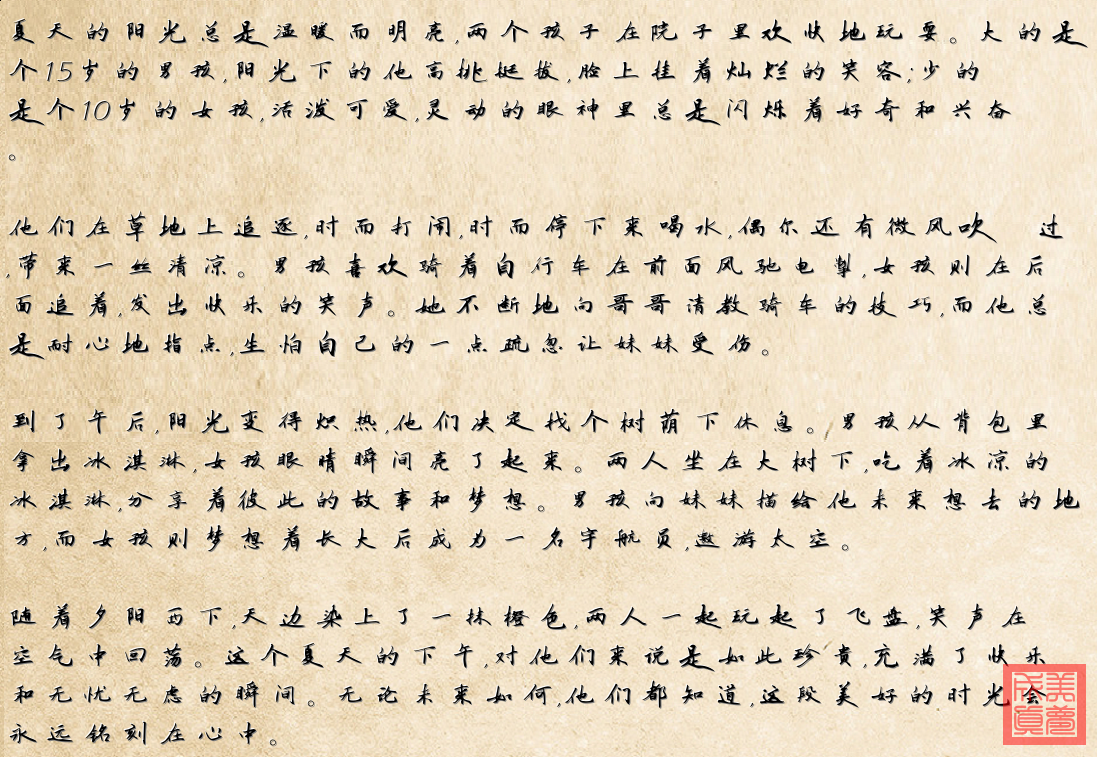 夏天的阳光总是温暖而明亮,两个孩子在院子里欢快地玩耍。大的是
个15岁的男孩,阳光下的他高挑挺拔,脸上挂着灿烂的笑容;少的
是个10岁的女孩,活泼可爱,灵动的眼神里总是闪烁着好奇和兴奋
。
他们在草地上追逐,时而打闹,时而停下来喝水,偶尔还有微风吹 过
,带来一丝清凉。男孩喜欢骑着自行车在前面风驰电掣,女孩则在后
面追着,发出快乐的笑声。她不断地向哥哥请教骑车的技巧,而他总
是耐心地指点,生怕自己的一点疏忽让妹妹受伤。
到了午后,阳光变得炽热,他们决定找个树荫下休息。男孩从背包里
拿出冰淇淋,女孩眼睛瞬间亮了起来。两人坐在大树下,吃着冰凉的
冰淇淋,分享着彼此的故事和梦想。男孩向妹妹描绘他未来想去的地
方,而女孩则梦想着长大后成为一名宇航员,遨游太空。
随着夕阳西下,天边染上了一抹橙色,两人一起玩起了飞盘,笑声在
空气中回荡。这个夏天的下午,对他们来说是如此珍贵,充满了快乐
和无忧无虑的瞬间。无论未来如何,他们都知道,这段美好的时光会
永远铭刻在心中。
美梦成真